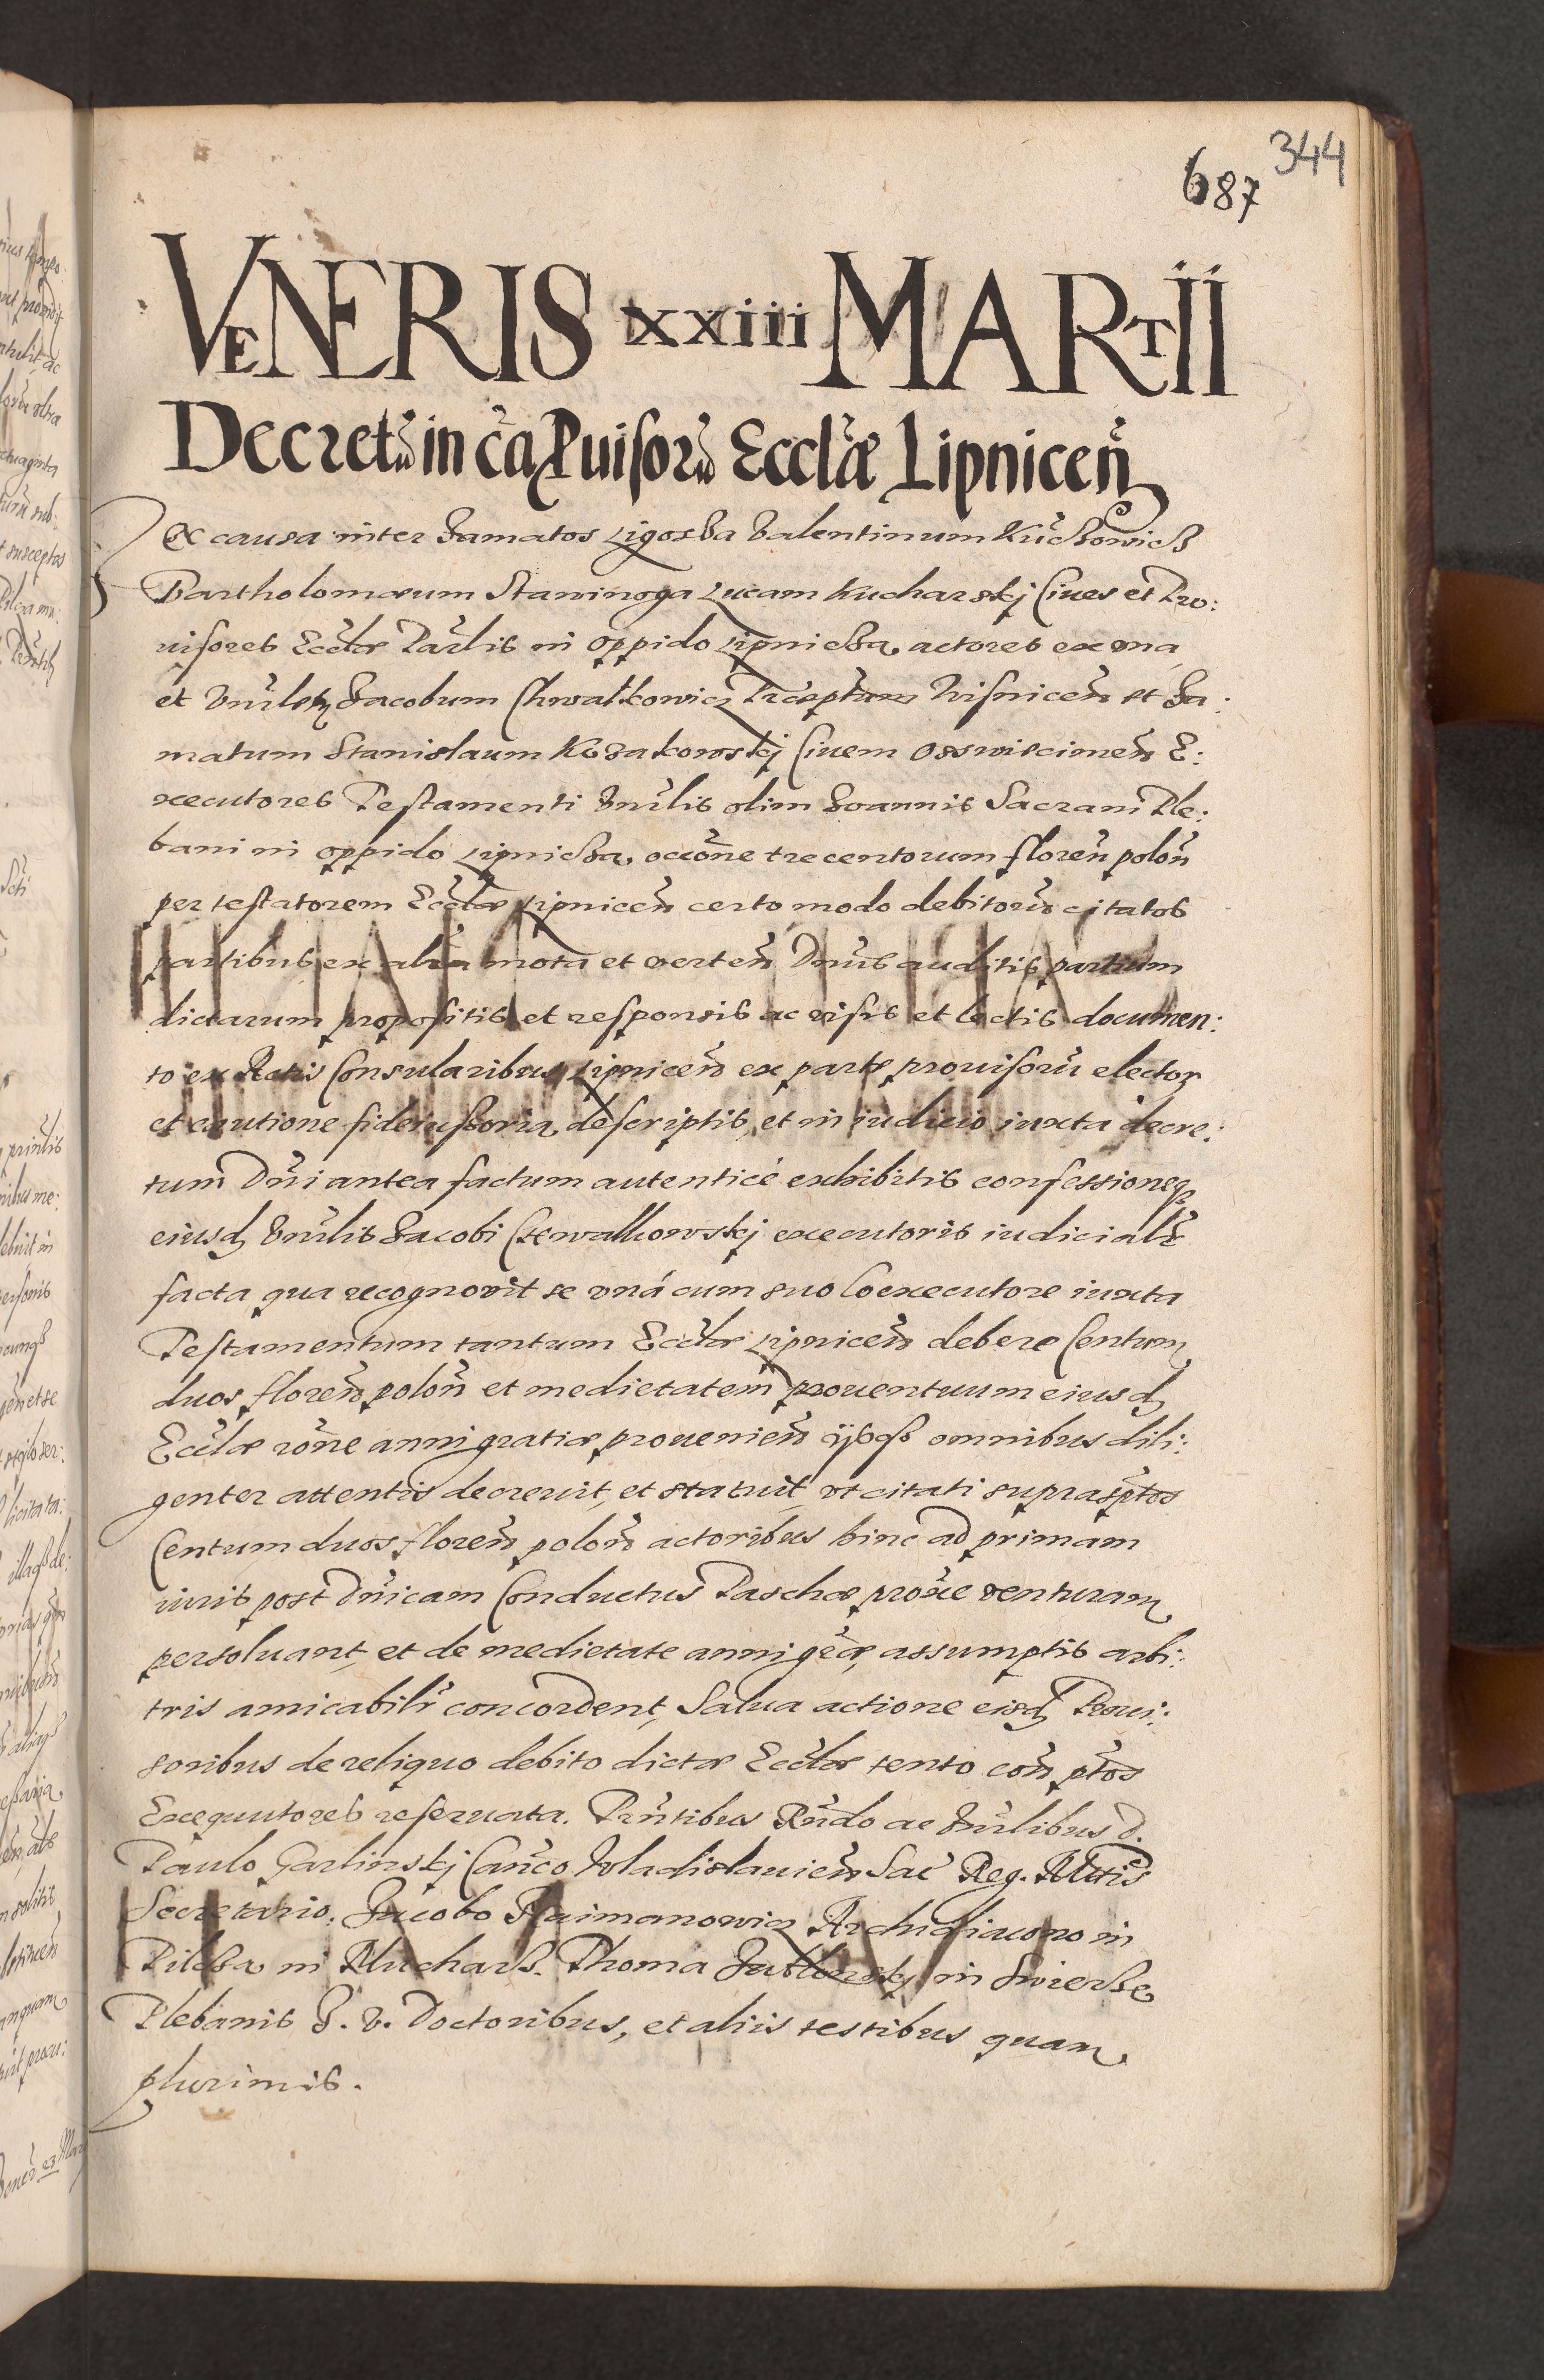 344
687
VENERIS xxiiii MARTII
Decretū in cā Puisorū Ecclæ Lipnicen̄
Ex causa inter famatos Ligorza Valentinum
Bartholomæum Stawinoga Lucam Kucharskj Ciues et Pro:
uisores Ecclæ Parlis in oppido Lipnicza, actores ex vna
et Vnrlem Jacobum Chwalkowicz Wisnicen̄ et Fa:
matum Stanislaum Kozakowskj Ciuem Osswiecimen̄ E:
xecutores Testamenti Vnrlis olim Joannis Sacrani Ple:
bani in oppido Lipnicza, occōne trecentorum floren̄ polon̄
per testatorem Ecclæ Lipnicen̄ certo modo debitorū citatos
partibus ex alia mota et verten̄ Dnūs auditis partium
dictarum propositis et responsis ac visis et lectis documen:
to ex Actis Consularibus Lipnicen̄ ex parte prouisorū elector
et cautione fideiussoria, descriptis, et in iudicio iuxta decre:
tum Dn̄i antea factum autenticè exhibitis confessioneq
eiusd Vnrlis Jacobi Chwalkowskj executoris iudicialr̄
facta qua recognovit se vná cum suo Coexecutore iuxta
Testamentum tantum Ecclæ Lipnicen̄ debere Centum
duos floren̄ polon̄ et medietatem prouentuum eiusd
Ecclæ rōne anni gratiæ prouenien̄ ijsq omnibus dili:
genter attentis decreuit, et statuit, vt citati suprasptos
Centum duos floren̄ polon̄ actoribus hinc ad primam
iuris post Dnīcam Conductus Paschæ proxe venturam
persoluant, et de medietate anni græ, assumptis arbi:
tris amicabilr̄ concordent, Salua actione eisd Proui:
soribus de reliquo debito dictæ Ecclæ tento con̄ ptos
Exequutores reseruata. Prn̄tibus Rn̄do ac Vnrlibus d.
Paulo Garlinskj Canco Wladislauien̄ Sac̄ Reg. Mttis
Secretario, Jacobo Raimanowicz Archidiacono in
Pilcza in Mucharz. Thoma in Swierze
Plebanis J. V. Doctoribus, et aliis testibus quam
plurimis.